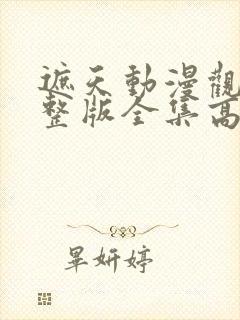 遮天動漫觀
整版全集高
畢妍婷